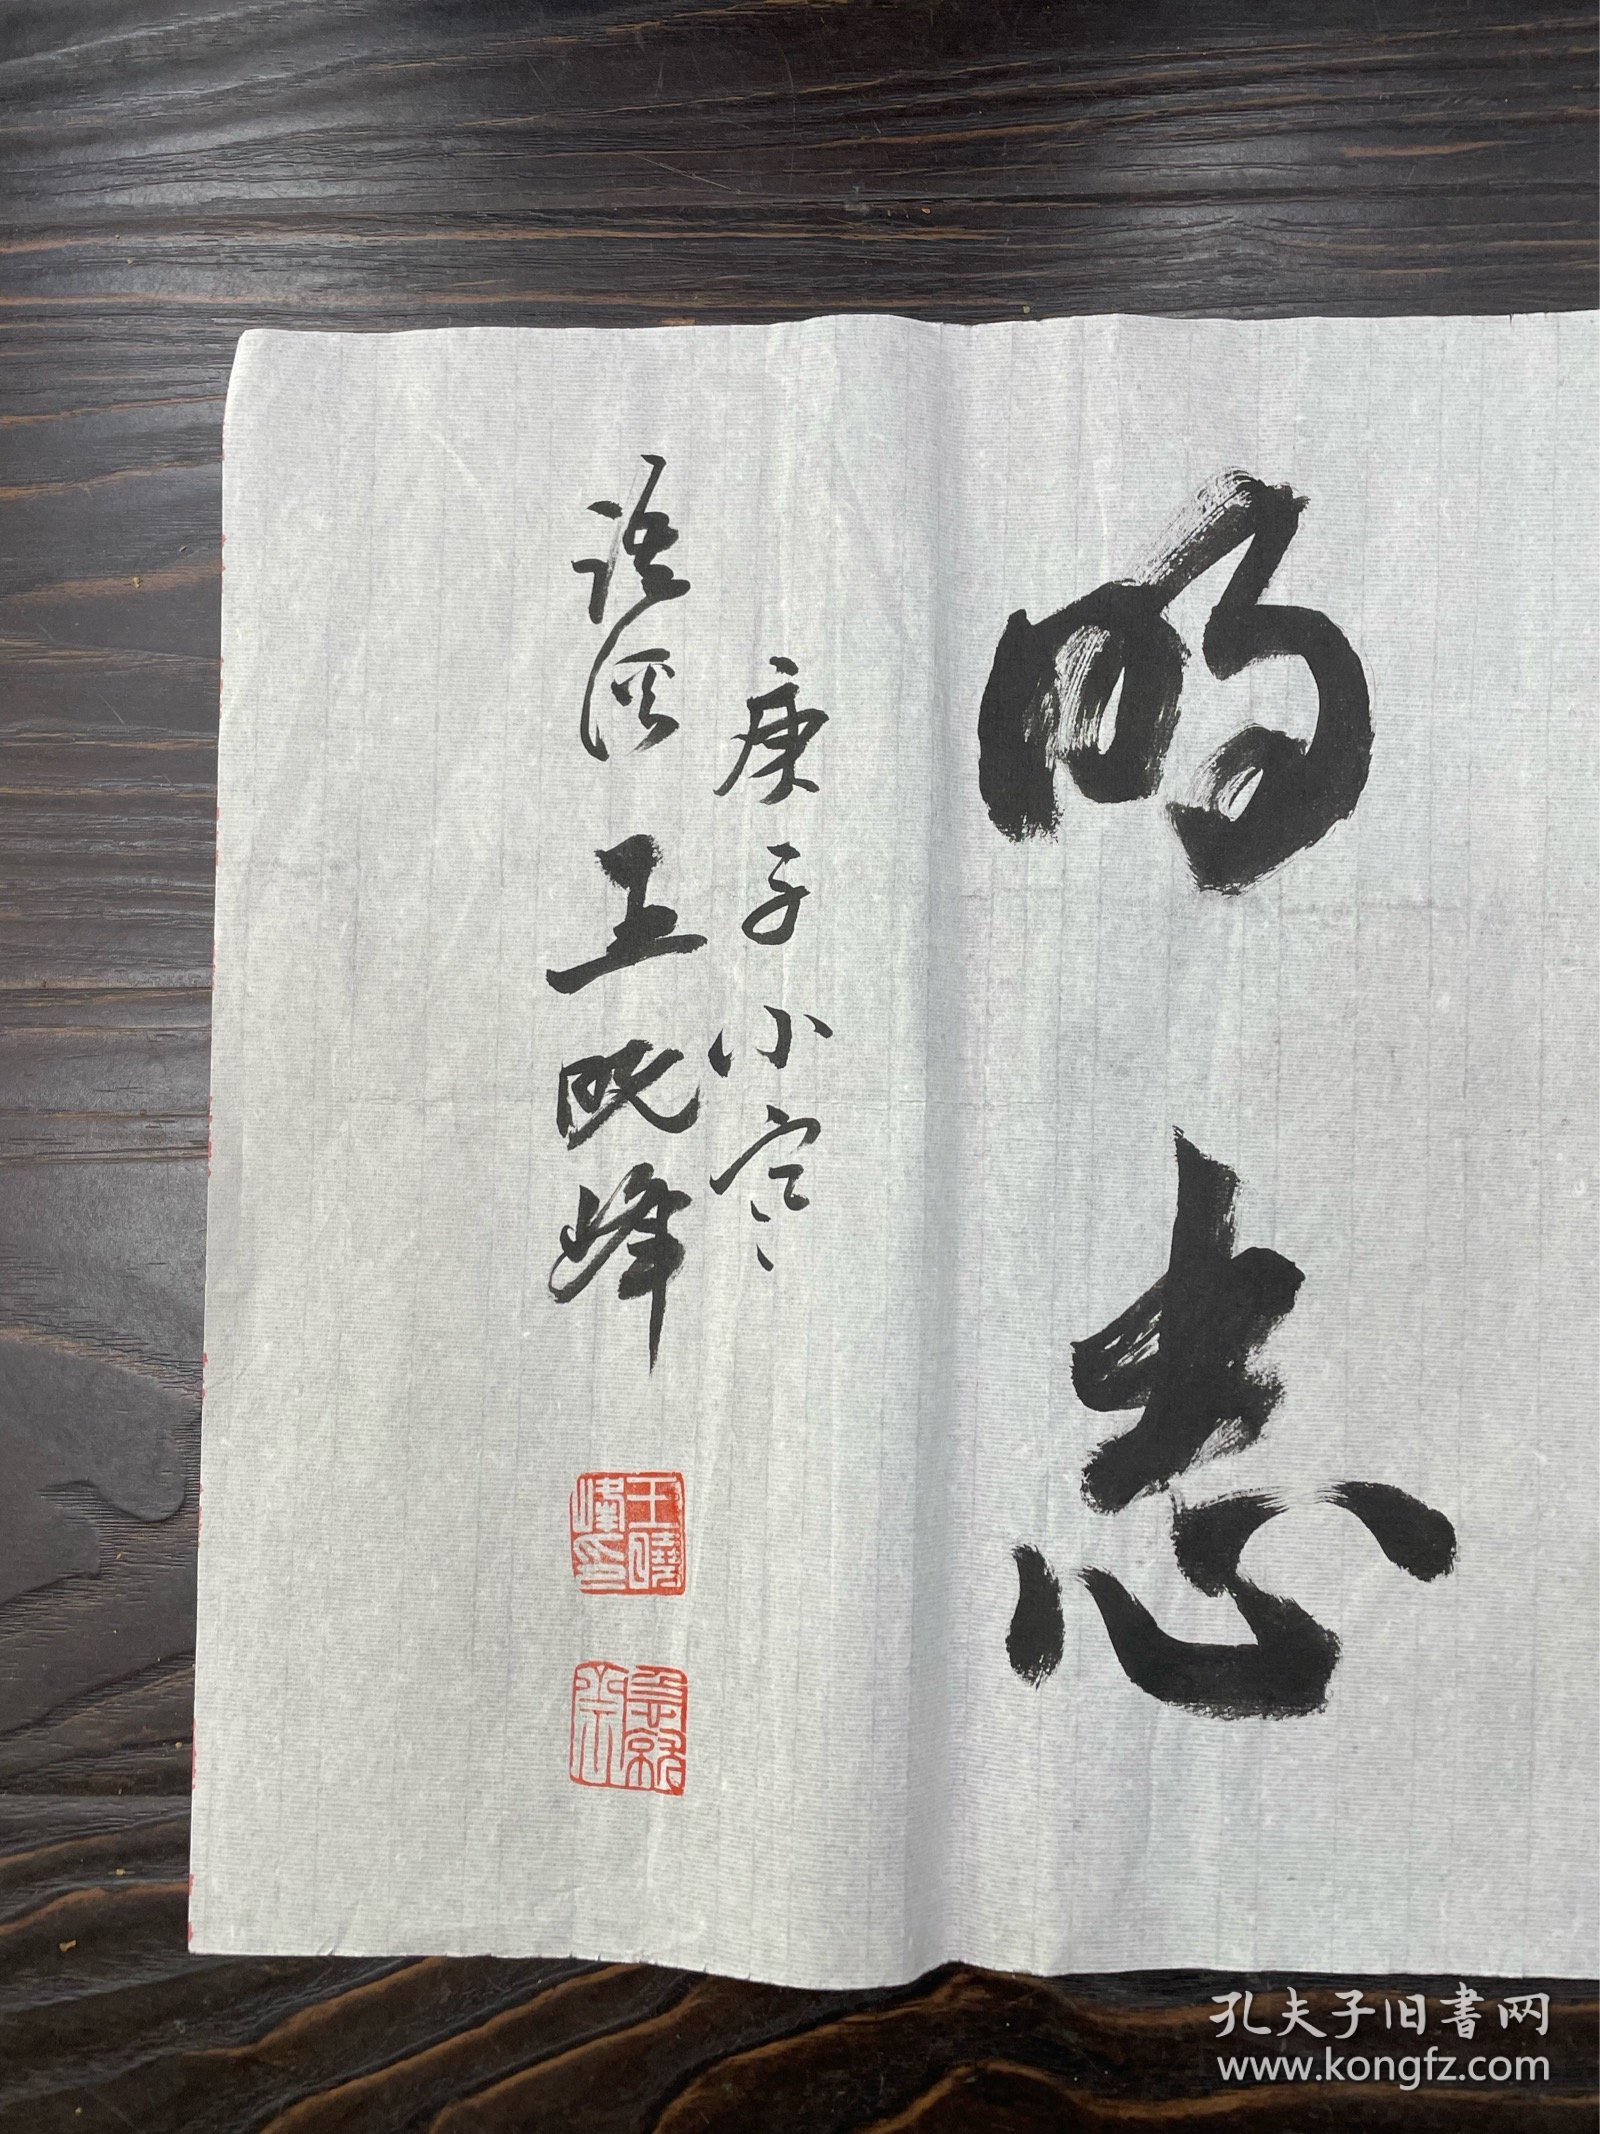 明志
庚子小寒
语溪王晓峰
王晓峰印
孔夫子旧书网
www.kongfz.com